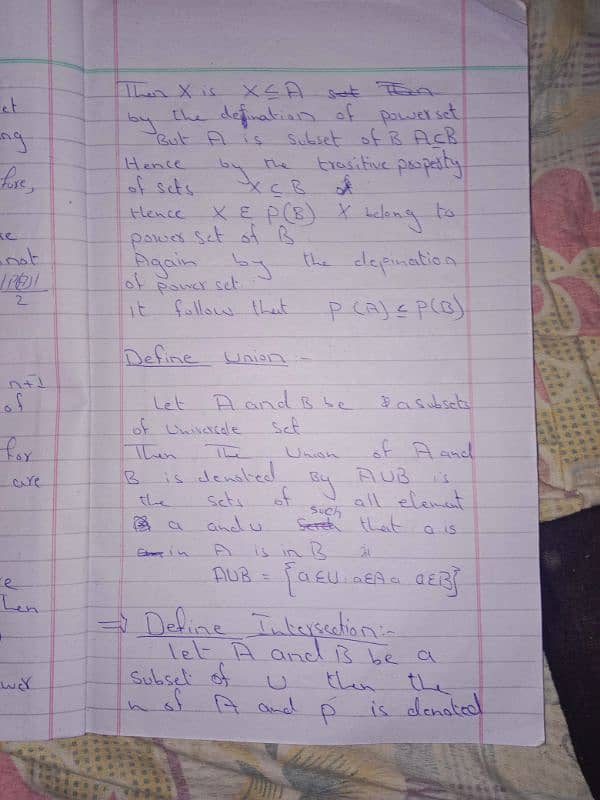 et
ng
fore,
re
not
|P(A)|
2
n+1
of
for
are
e
Then
wer
Then X is X⊆A set Then
by the defination of powerset
But A is subset of B A⊆B
Hence by the trasitive property
of sets X⊆B
Hence X ε P(B) X belong to
power set of B
Again by the defination
of power set.
it follow that P(A)⊆P(B)
Define Union:-
Let A and B be a subsets
of Universale Set
Then The Union of A and
B is denoted By AUB is
the sets of all element
a and u such that a is
in A is in B
AUB = {aεU: aεA a aεB}
⇒ Define Intersection:-
let A and B be a
Subset of U then the
n of A and p is denoted